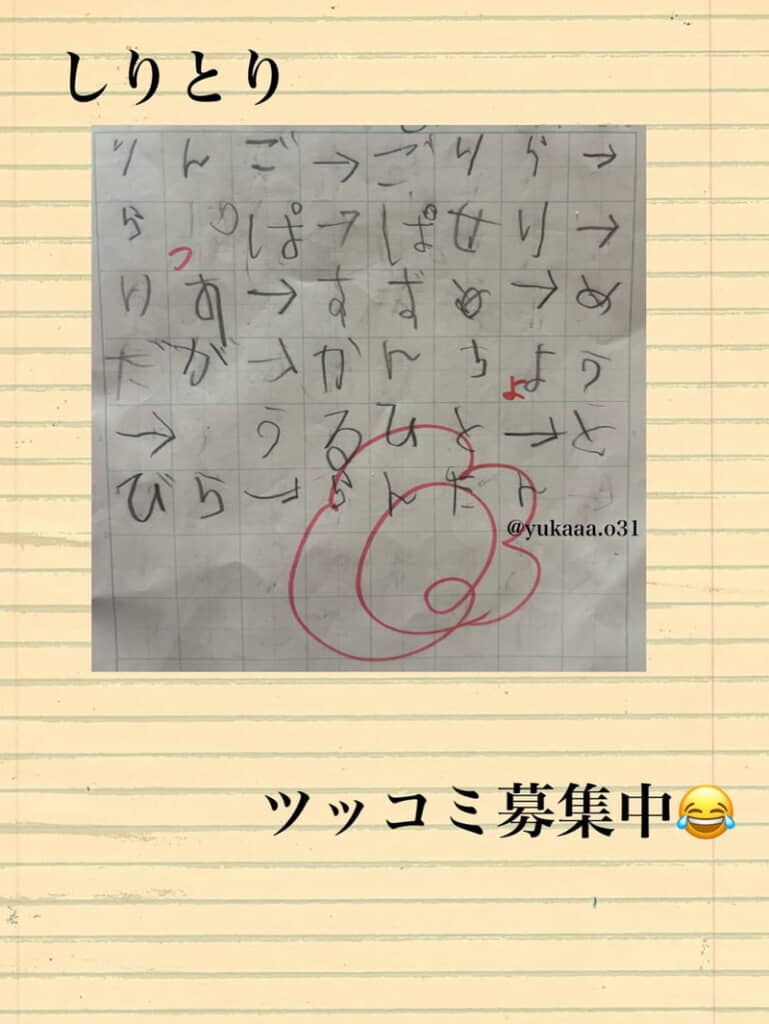 しりとり
りんご→ごりら→
らっぱ→ぱせり→
りす→すずめ→め
だか→かんちょう
→うるひと→と
びら→らんたん
@yukaaa.o31
ツッコミ募集中😂